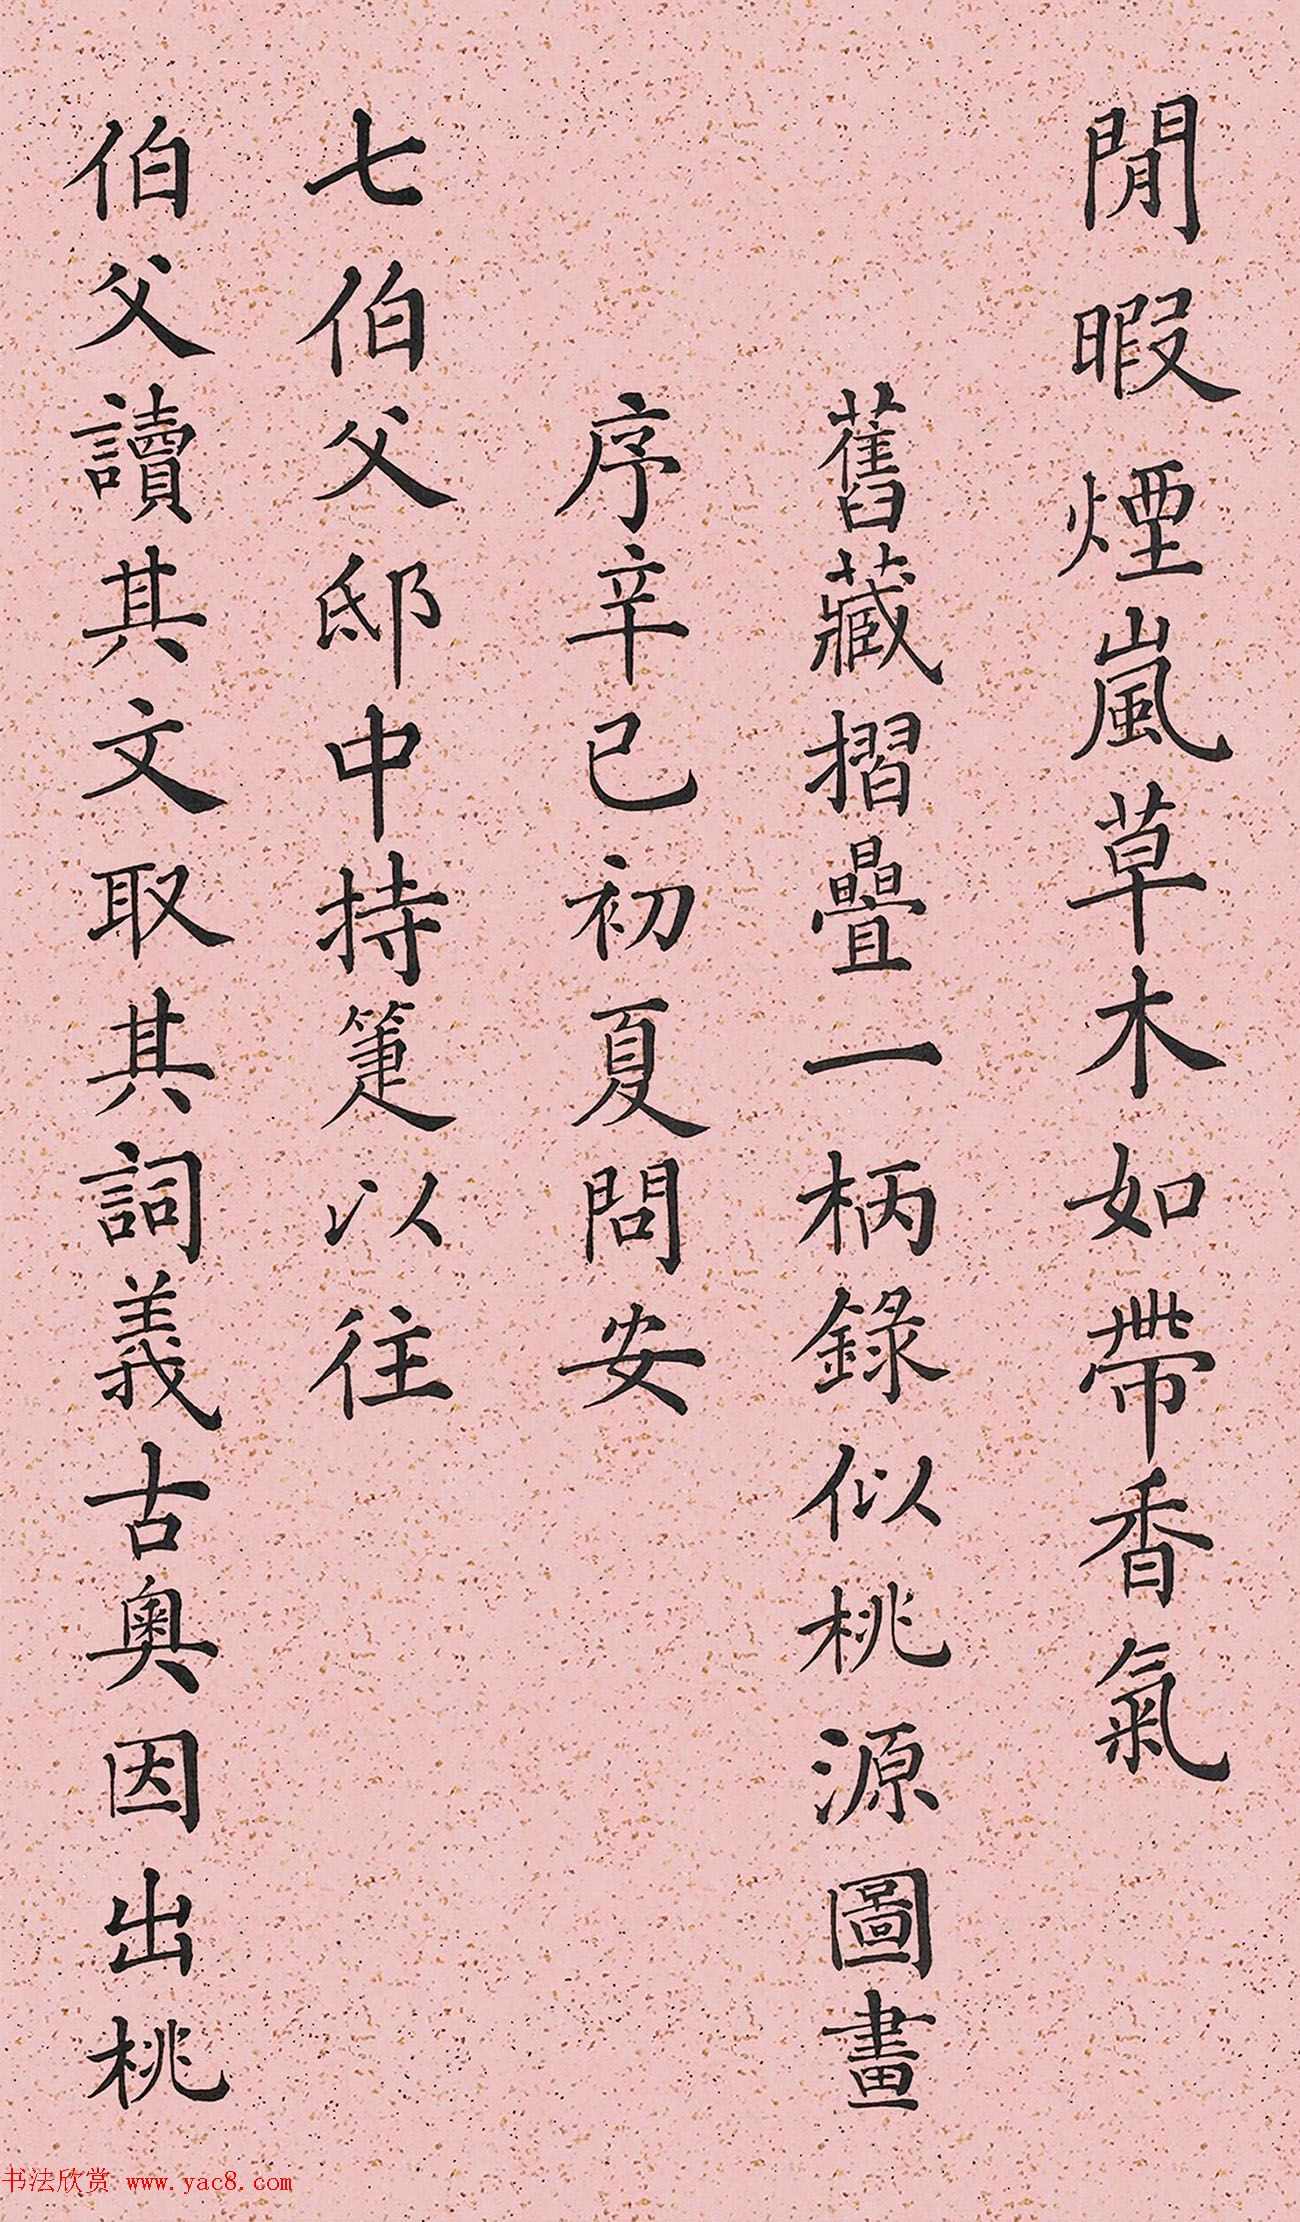 閒暇煙嵐草木如帶香氣
舊藏摺疊一柄錄似桃源圖畫
序辛已初夏問安
七伯父邸中持箑以往
伯父讀其文取其詞義古奧因出桃
书法欣赏 www.yac8.com